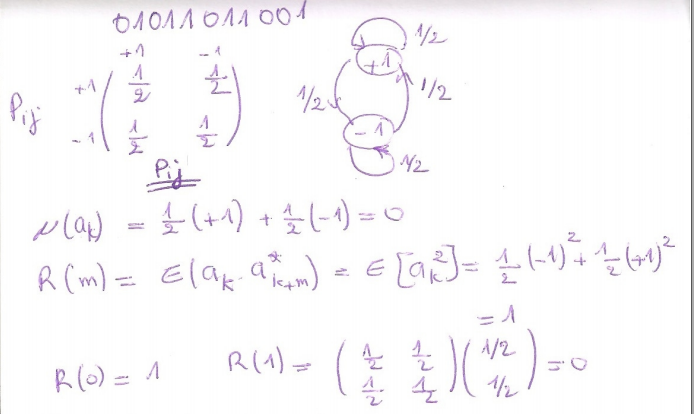 01011011001
+1 -1
+1 ( 1/2 1/2 )
Pij
-1 ( 1/2 1/2 )
Pij
1/2
+1
1/2 1/2
-1
1/2
μ(ak) = 1/2 (+1) + 1/2 (-1) = 0
R(m) = E(ak . a*k+m) = E[ak²] = 1/2 (-1)² + 1/2 (+1)²
= 1
R(0) = 1 R(1) = ( 1/2 1/2 ) ( 1/2 ) = 0
( 1/2 1/2 ) ( 1/2 )